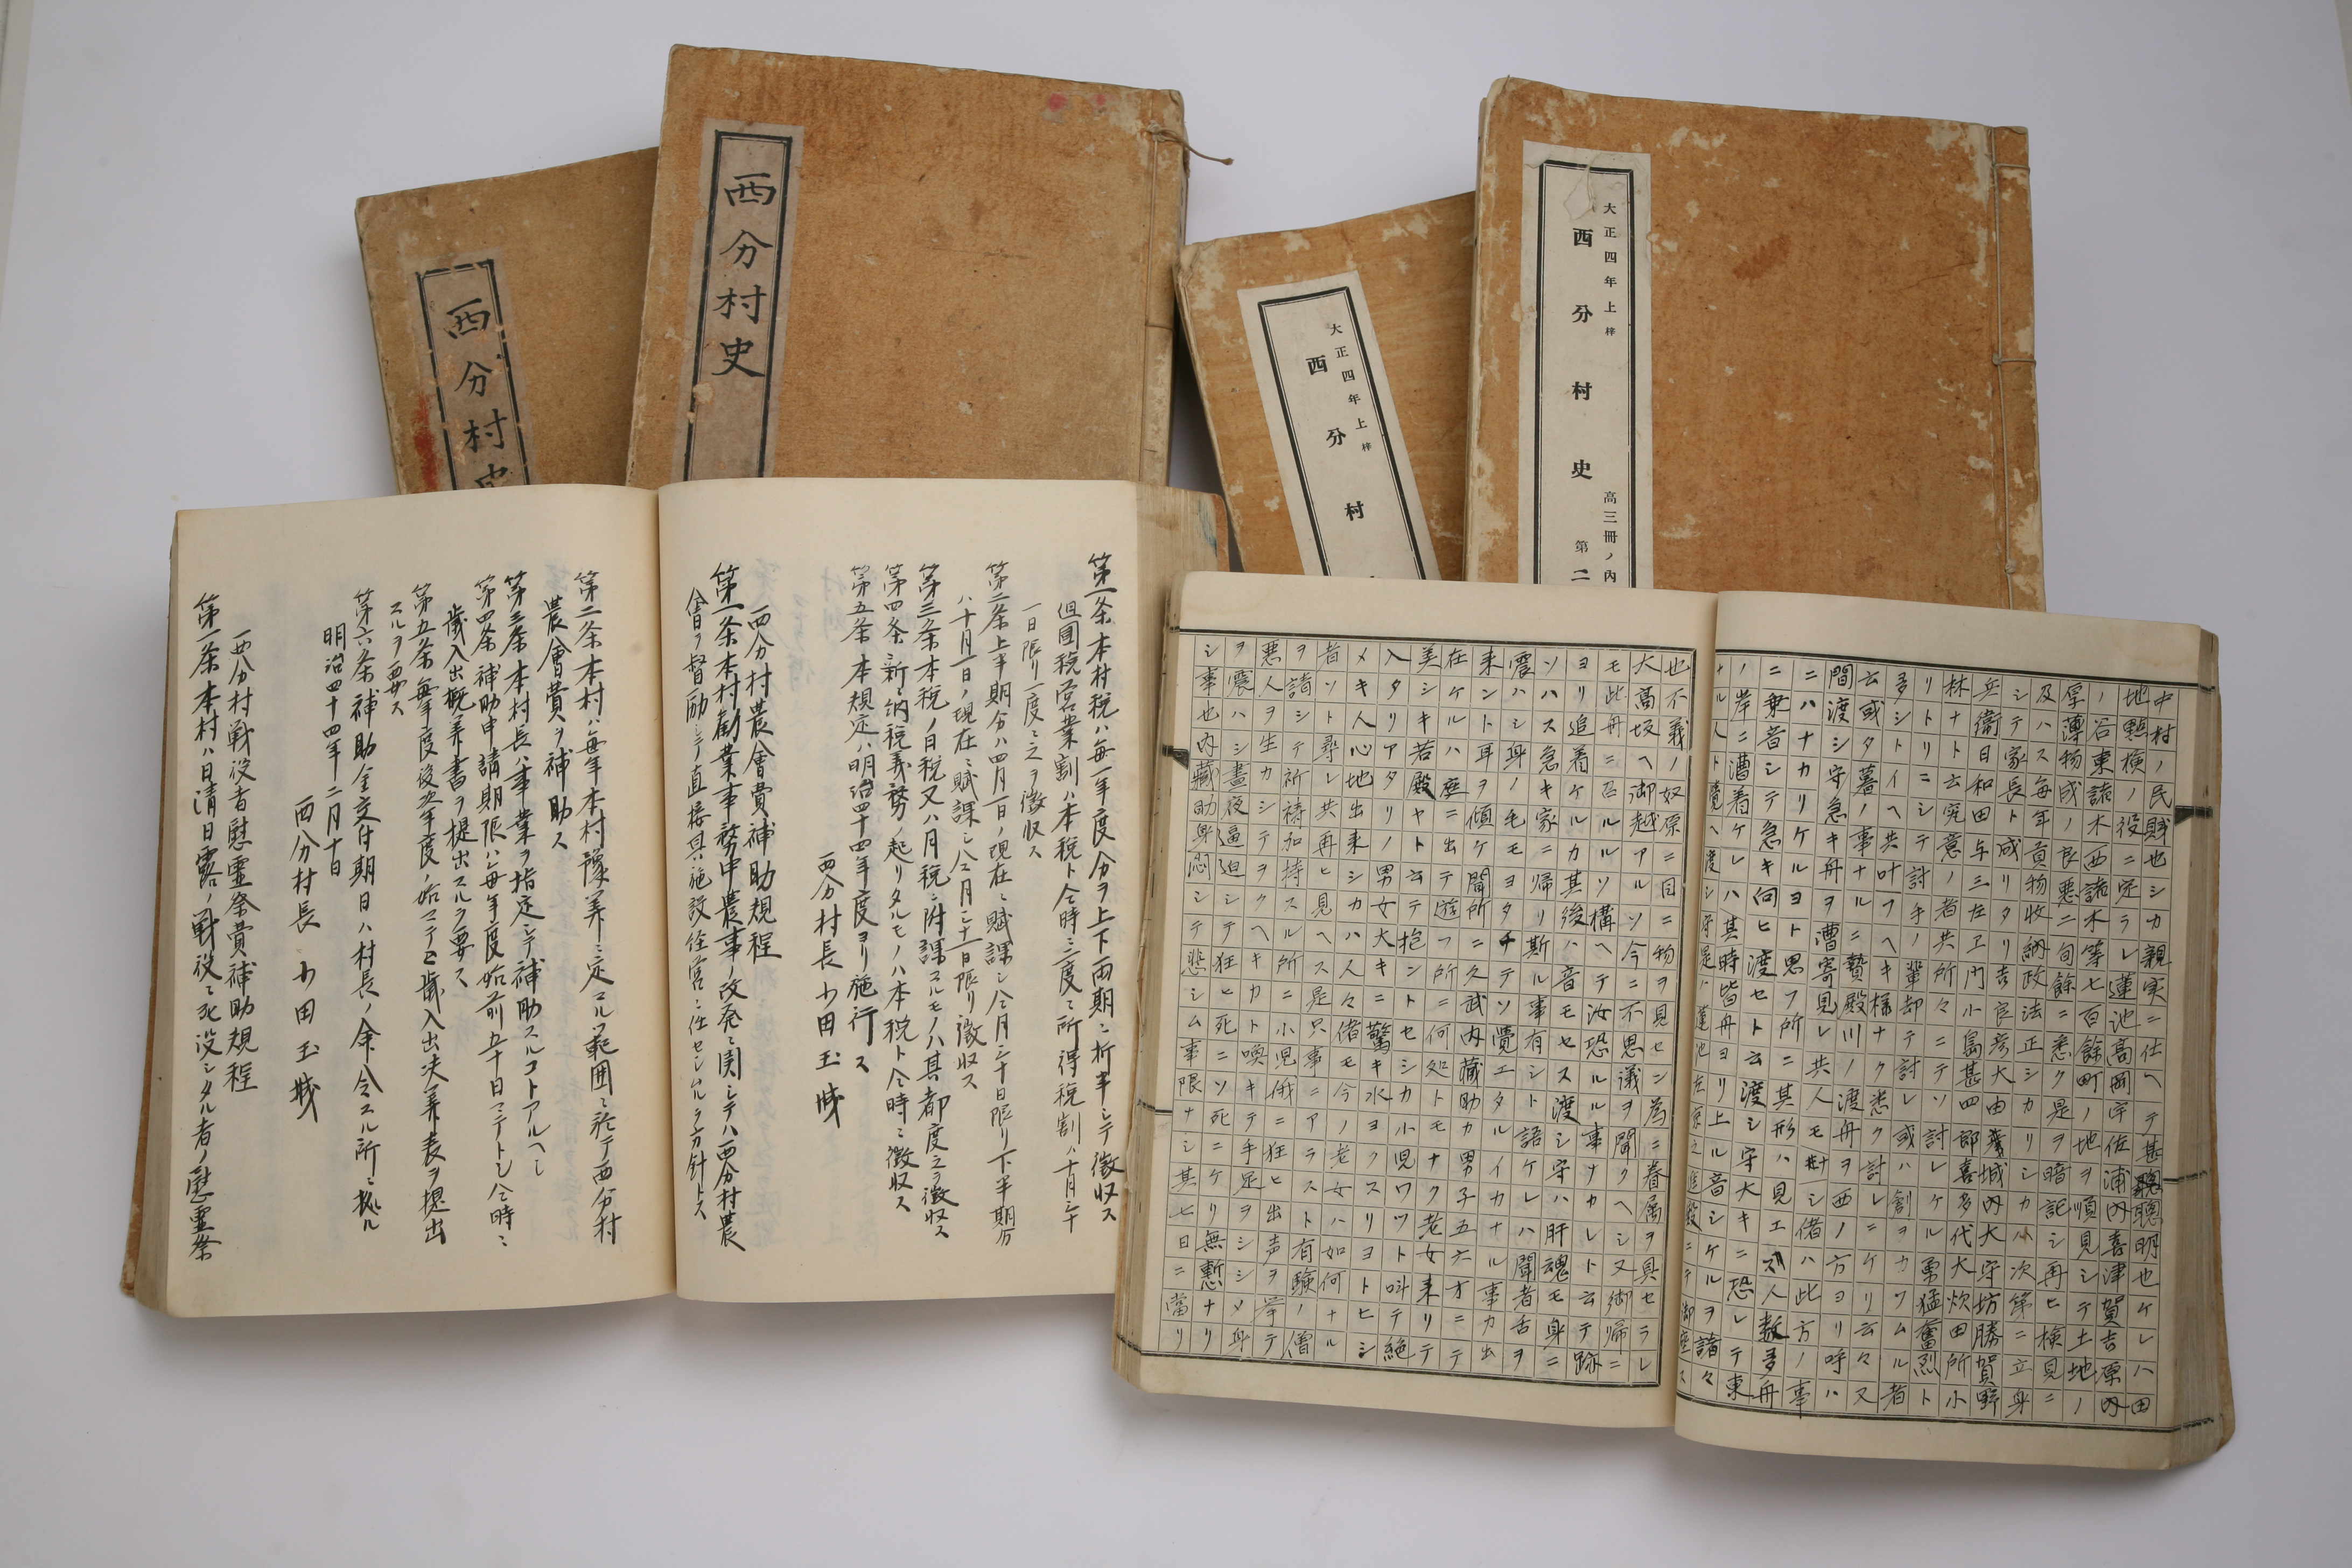 西分村史
西分村史
大正四年上梓
西分村
大正四年上梓
西分村史
高三冊ノ内
第二
第一条 本村税ハ毎一年度分ヲ上下両期ニ折半シテ徴収ス
但国税営業割ハ本税ト仝時ニ二度ニ所得税割ハ十月三十
一日限リ一度ニ之ヲ徴収ス
第二条 上半期分ハ四月一日ノ現在ニ賦課シ仝月三十日限リ下半期分
ハ十月一日ノ現在ニ賦課シ仝月三十一日限リ徴収ス
第三条 本税ノ日税又ハ月税ニ附課スルモノハ其都度之ヲ徴収ス
第四条 新ニ納税義務ノ起リタルモノハ本税ト仝時ニ徴収ス
第五条 本規定ハ明治四十四年度ヨリ施行ス
西分村長 小田玉城
西分村農會費補助規程
第一条 本村勧業事務中農事ノ改発ニ関シテハ西分村農
會ヲ督励シテ直接具ニ施設経営ニ任センムルヲ方針トス
第二条 本村ハ毎年本村豫算ニ定ムル範囲ニ於テ西分村
農會費ヲ補助ス
第三条 本村長ハ事業ヲ指定シテ補助スルコトアルヘシ
第四条 補助申請期限ハ毎年度始前五十日マテトシ仝時ニ
歳入出概算書ヲ提出スルヲ要ス
第五条 毎年度後翌年度ノ始マテニ歳入出決算表ヲ提出
スルヲ要ス
第六条 補助金交付期日ハ村長ノ命令スル所ニ拠ル
明治四十四年二月十日
西分村長 小田玉城
西分村戦役者慰霊祭費補助規程
第一条 本村ハ日清日露ノ戦役ニ死没シタル者ノ慰霊祭
中村ノ民賦也シカ親実ニ仕ヘテ甚聰明也ケレハ田
地點検ノ役ニ定ラレ蓮池高岡宇佐浦内喜津賀吉原内
ノ谷東諸木西諸木等七百餘町ノ地ヲ順見シテ土地ノ
厚薄物成ノ良悪二旬餘ニ悉ク是ヲ暗記シ再ヒ検見ニ
及ハス毎年貢物収納政法正シカリシカハ次第ニ立身
シテ家長ト成リタリ吉良彦大由義城内大守坊勝賀野
兵衛日和田与三左エ門小島甚四郎喜多代大炊田所小
林ナト云究意ノ者共所々ニテソ討レケル勇猛奮烈ト
リトリニシテ討手ノ輩却テ討レ或ハ創ヲカウムル者
多シトイヘ共叶フヘキ様ナク悉ク討レニケリ云々又
云或タ暮ノ事ナルニ贄殿川ノ渡舟ヲ西ノ方ヨリ呼ハ
間渡シ守急キ舟ヲ漕寄見レ共人モ無シ偖ハ此方ノ事
ニハナカリケルヨト思フ所ニ其形ハ見エス人数多舟
ニ乗音シテ急キ向ヒ渡セト云渡シ守大キニ恐レテ東
ノ岸ニ漕着ケレハ其時皆舟ヨリ上ル音シケルヲ諸々
ナル人ト覚ヘ渡シ守是ハ蓮池左京之進殿ニテ御座ス
也不義ノ奴原ニ目ニ物ヲ見セン為ニ眷属ヲ具セラレ
大高坂ヘ御越アルソ今ニ不思議ヲ聞クヘシ又御帰ニ
モ此舟ニ召ルルソ構ヘテ汝恐ルル事ナカレト云テ跡
ヨリ追着ケルカ其後ハ音モセス渡シ守ハ肝魂モ身ニ
ソハス急キ家ニ帰リ斯ル事有シト語ケレハ聞者舌ヲ
震ハシ身ノ毛モヨタチテソ覺エタルイカナル事カ出
来ント耳ヲ傾ケ聞所ニ久武内蔵助カ男子五六才ニテ
在ケルハ座ニ出テ遊フ所ニ何処トモナク老女来リテ
美シキ若殿ヤト云テ抱ントセシカ小児ワツト叫テ絶
入タリアタリノ男女大キニ驚キ水ヨクスリヨトヒシ
メキ人心地出来シカハ人々偖モ今ノ老女ハ如何ナル
者ソト尋レ共再ヒ見ヘス是只事ニアラスト有験ノ僧
ヲ諸シテ祈祷加持スル所ニ小児俄ニ狂ヒ出声ヲ挙テ
悪人ヲ生カシテヲクヘキカト喚キテ手足ヲシシメ身
ヲ震ハシ晝夜逼迫シテ狂ヒ死ニソ死ニケリ無慙ナリ
シ事也内蔵助身悶シテ悲シム事限ナシ其七日ニ當リ